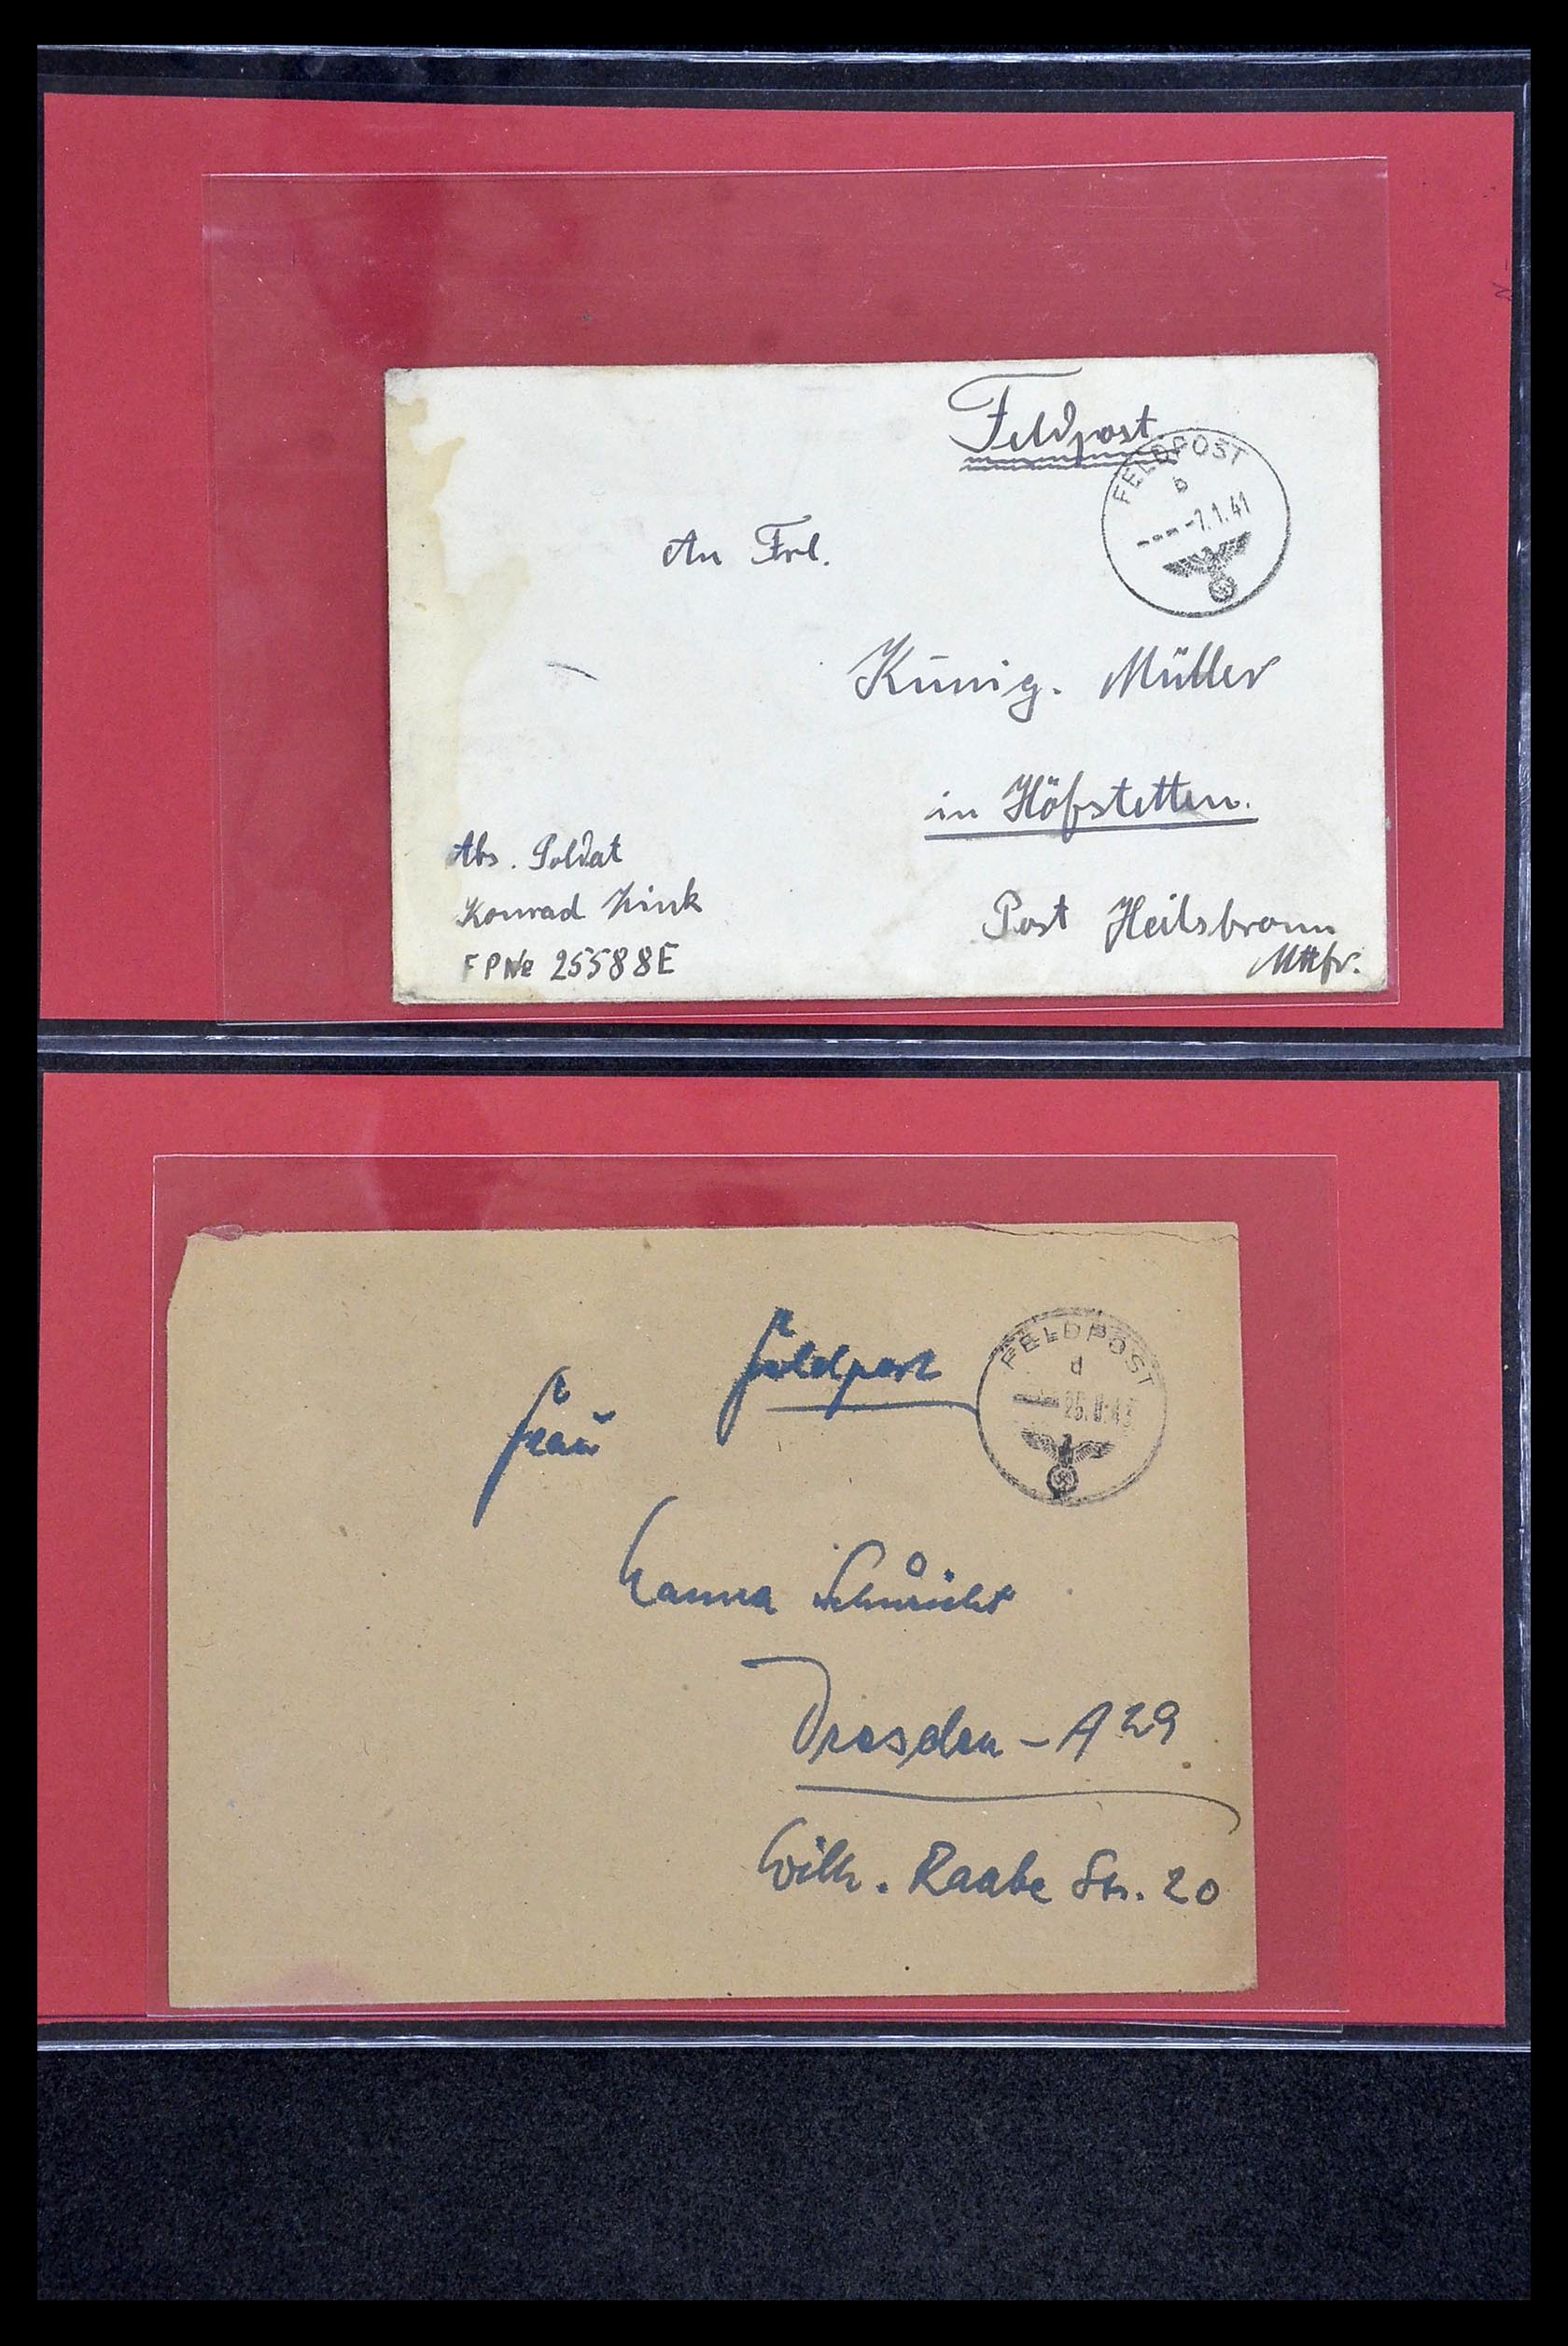 Feldpost
FELDPOST
b
---7.1.41
An Frl.
Kunig. Müller
in Höfstetten.
Abs. Soldat
Konrad Zink
FPNr 25588E
Post Heilsbronn
Mttfr.
Feldpost
FELDPOST
d
Frau
Hanna Schuricht
Dresden-A 29
Wilh. Raabe Str. 20